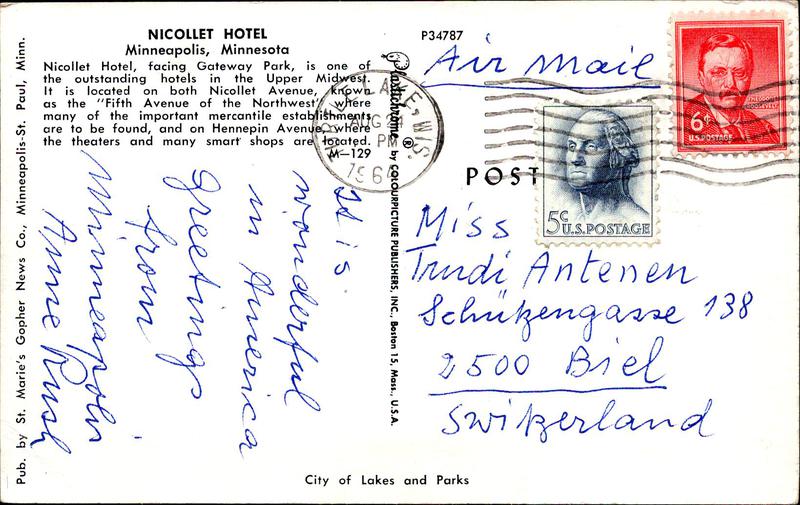 NICOLLET HOTEL
Minneapolis, Minnesota
Nicollet Hotel, facing Gateway Park, is one of
the outstanding hotels in the Upper Midwest.
It is located on both Nicollet Avenue, known
as the "Fifth Avenue of the Northwest" where
many of the important mercantile establishments
are to be found, and on Hennepin Avenue, where
the theaters and many smart shops are located.
M-129
P34787
Air Mail
6¢
THEODORE
ROOSEVELT
U.S. POSTAGE
5¢
U.S. POSTAGE
LAKE, WIS.
AUG 2
PM
1964
POST
It is
wonderful
in America
Greetings
from
Minneapolis
Annie
Miss
Trudi Antenen
Schützengasse 138
2500 Biel
Switzerland
Pub. by St. Marie's Gopher News Co., Minneapolis-St. Paul, Minn.
Plastichrome ® by COLOURPICTURE PUBLISHERS, INC., Boston 15, Mass., U.S.A.
City of Lakes and Parks